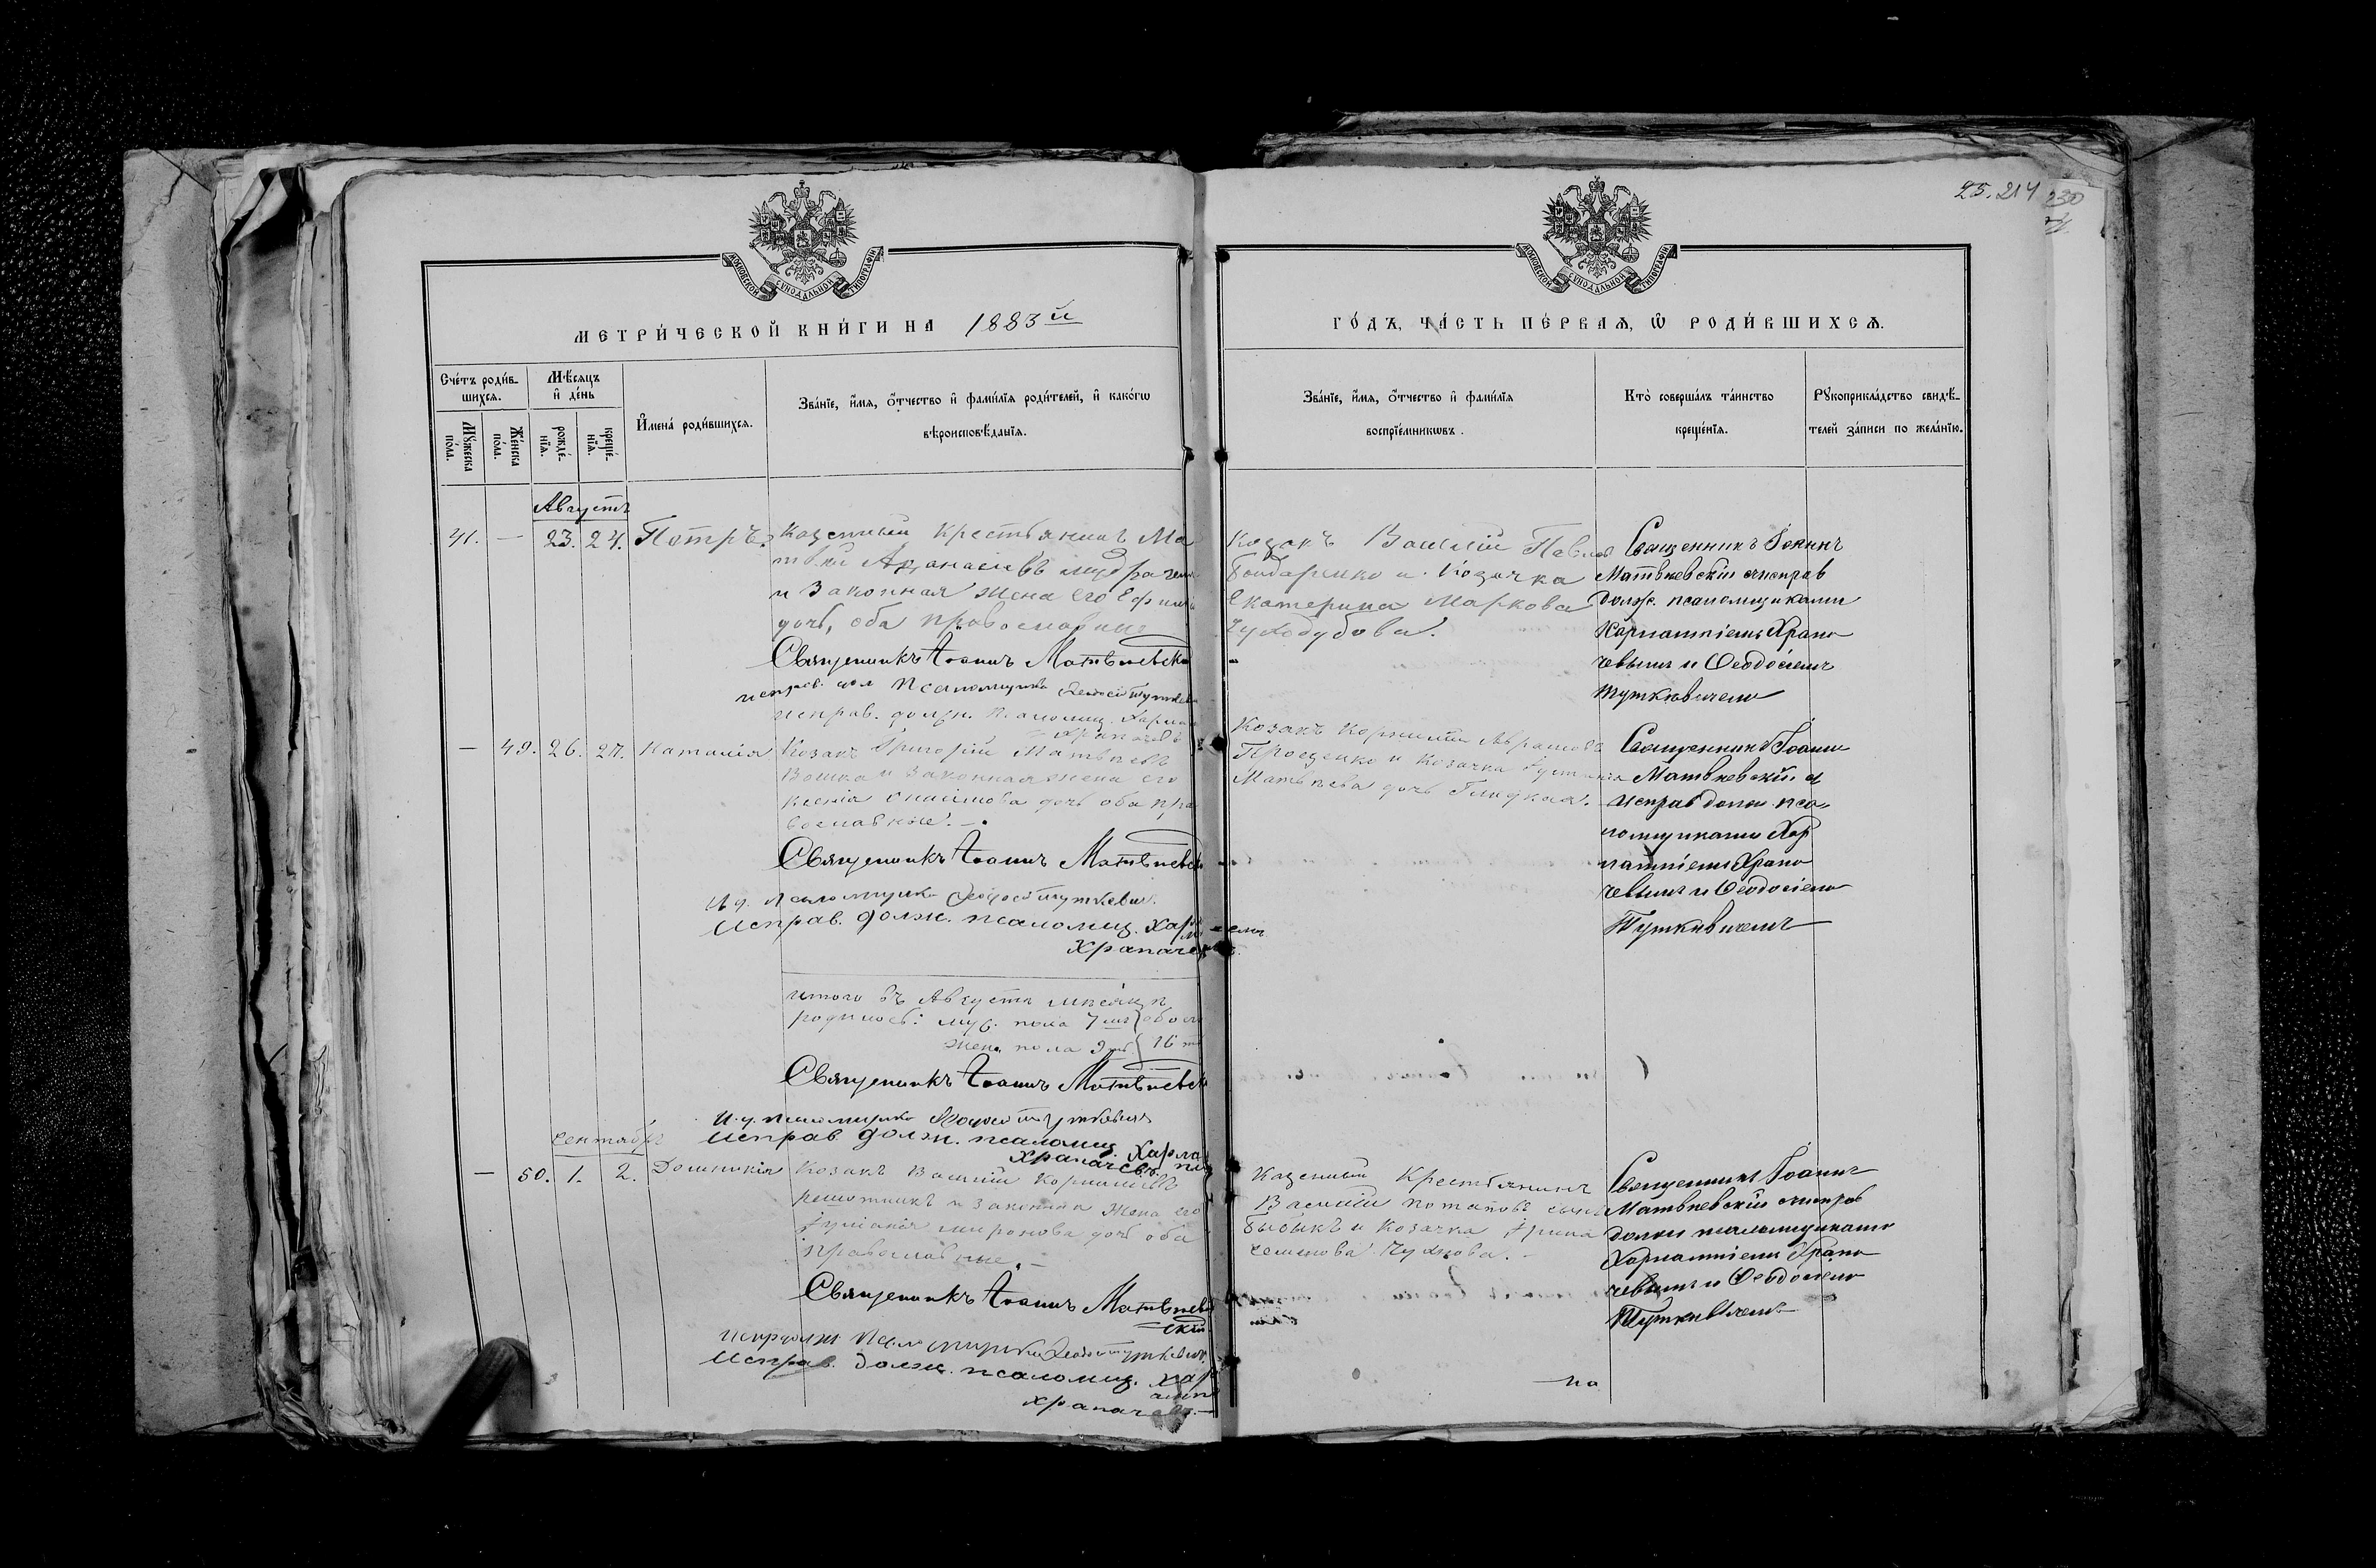 25. 214 230
МОСКОВСКОЙ СѴНОДАЛЬНОЙ ТИПОГРАФІИ
МОСКОВСКОЙ СѴНОДАЛЬНОЙ ТИПОГРАФІИ
МЕТРИ́ЧЕСКОЙ КНИ́ГИ НА 1883й
ГО́ДЪ, ЧА́СТЬ ПЕ́РВАѦ, Ѡ҆ РОДИ́ВШИХСѦ.
Сче́тъ роди́в-
шихсѧ.
Мꙋ́жеска
по́ла.
Же́нска
по́ла.
Мѣ́сѧцъ
и҆ де́нь
рожде́-
нїѧ.
креще́-
нїѧ.
И҆мена̀ роди́вшихсѧ.
Зва́нїе, и҆́мѧ, ѻ҆́тчество и҆ фами́лїѧ роди́телей, и҆ како́гѡ
вѣроисповѣ́данїѧ.
Зва́нїе, и҆́мѧ, ѻ҆́тчество и҆ фами́лїѧ
воспрїе́мникѡвъ.
Кто̀ соверша́лъ та́инство
креще́нїѧ.
Рꙋкоприкла́дство свидѣ́-
телей за́писи по жела́нїю.
Августъ
41. — 23. 24. Петръ.
Казенный Крестьянинъ Ма
и Законная жена его
дочь, оба православные
Священникъ Іоаннъ Матвѣевскій
исправ. дол. Псаломщика Ѳеодосій Туткевичъ
исправ. должн. Псаломщ. Харлам
Храпачевъ
Козакъ Василій Павлов
Бондаренко и Козачка
Екатерина Маркова
Чуходубова.
Священникъ Іоаннъ
Матвѣевскій съ исправ
долж. псаломщиками
Харлампіемъ Храпа
чевымъ и Ѳеодосіемъ
Туткевичемъ
— 49. 26. 27. Наталія
Козакъ Григорій Матвѣевъ
Вошка и Законная жена его
Ксенія Онисимова дочь оба пра
вославные. —
Священникъ Іоаннъ Матвѣевскій
И. д. Псаломщика Ѳеодосій Туткевич.
Исправ. долж. псаломщ. Харлам
Храпачевъ.
Козакъ Корнилій Абрамовъ
Проценко и Козачка Іустинія
Матвѣева дочь Гладкая.
Священникъ Іоаннъ
Матвѣевскій съ
исправ долж. пса
ломщиками Хар
лампіемъ Храпа
чевымъ и Ѳеодосіемъ
Туткевичемъ
итого въ Августѣ мѣсяцѣ
родилось: муж. пола 7мь обоего
жен. пола 9ть 16 ть
Священникъ Іоаннъ Матвѣевскій
И. д. псаломщика Ѳеодосій Туткевичъ
Исправ. долж. псаломщ. Харлам
Храпачевъ.
Сентябрь
— 50. 1. 2. Домникія
Козакъ Василій Корниліевъ
Решотникъ и законная жена его
Іуліанія Миронова дочь оба
православные. —
Священникъ Іоаннъ Матвѣев
скій
Исправ. долж. псаломщ. Хар
Храпачевъ. —
Казенный Крестьянинъ
Василій Потаповъ сынъ
Бибикъ и Козачка Ирина
Семенова Чухнова. —
Священникъ Іоаннъ
Матвѣевскій съ исправ
должн псаломщиками
Харлампіемъ Храпа
чевымъ и Ѳеодосіемъ
Туткевичемъ
на